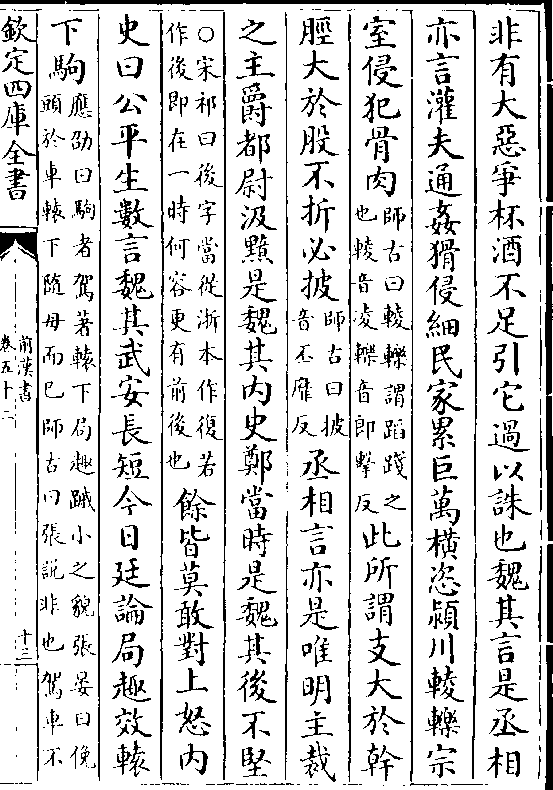 非有大惡爭杯酒不足引它過以誅也魏其言是丞相
亦言灌夫通姦猾侵細民家累巨萬橫恣潁川輘轢宗
室侵犯骨肉師古曰輘轢謂蹈踐之
也輘音凌轢音即擊反此所謂支大於幹
脛大於股不折必披師古曰披
音丕靡反丞相言亦是唯明主裁
之主爵都尉汲黯是魏其内史鄭當時是魏其後不堅
○宋祁曰後字當從浙本作復若
作後即在一時何容更有前後也餘皆莫敢對上怒内
史曰公平生數言魏其武安長短今日廷論局趣效轅
下駒應劭曰駒者駕著轅下局趣蹴小之貌張晏曰俛
頭於車轅下隨母而已師古曰張說非也駕車不
欽定四庫全書
前漢書
卷五十二
十三